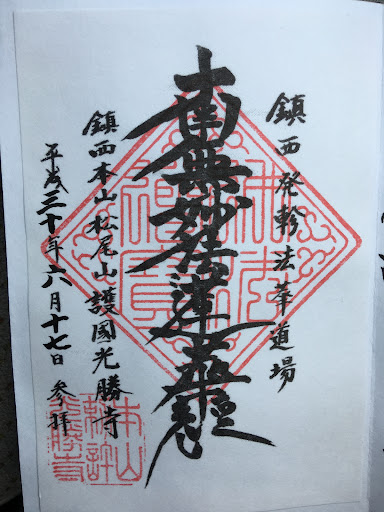 鎮西発軫法華道場
南無妙法蓮華経
鎮西本山松尾山護國光勝寺
平成三十年六月十七日 参拝
本山
光勝寺